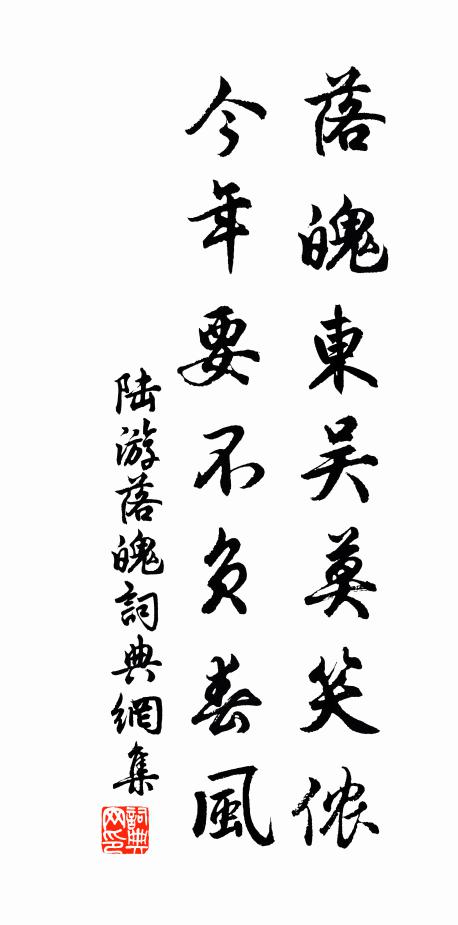 落魄東吴莫笑侬
今年要不负春風
陆游落魄詞典網集
詞典网印